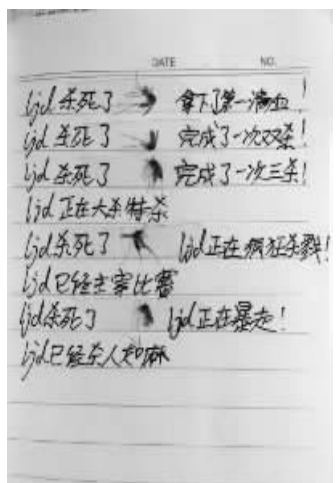 DATE NO.
ljd 杀死了 拿下了第一滴血!
ljd 杀死了 完成了一次双杀!
ljd 杀死了 完成了一次三杀!
ljd 正在大杀特杀
ljd 杀死了 ljd正在疯狂杀戮!
ljd 已经主宰比赛
ljd杀死了 ljd正在暴走!
ljd已经杀人如麻